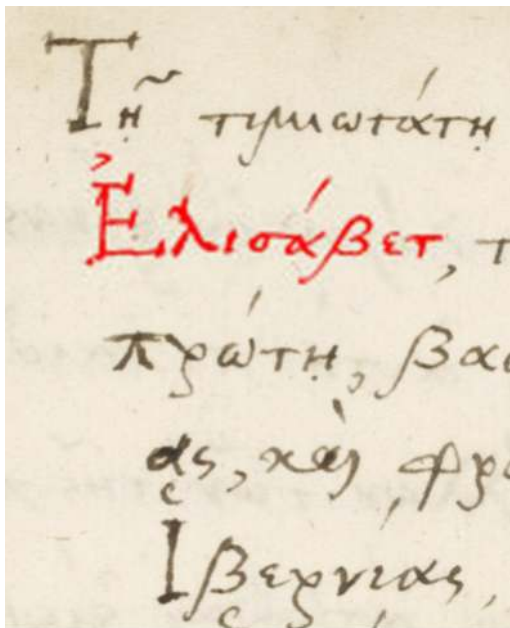 Τῇ τιμιωτάτῃ
Ἐλισάβετ, τ
πρώτῃ, βασ
ας, καὶ φρ
Ἱβερνίας,